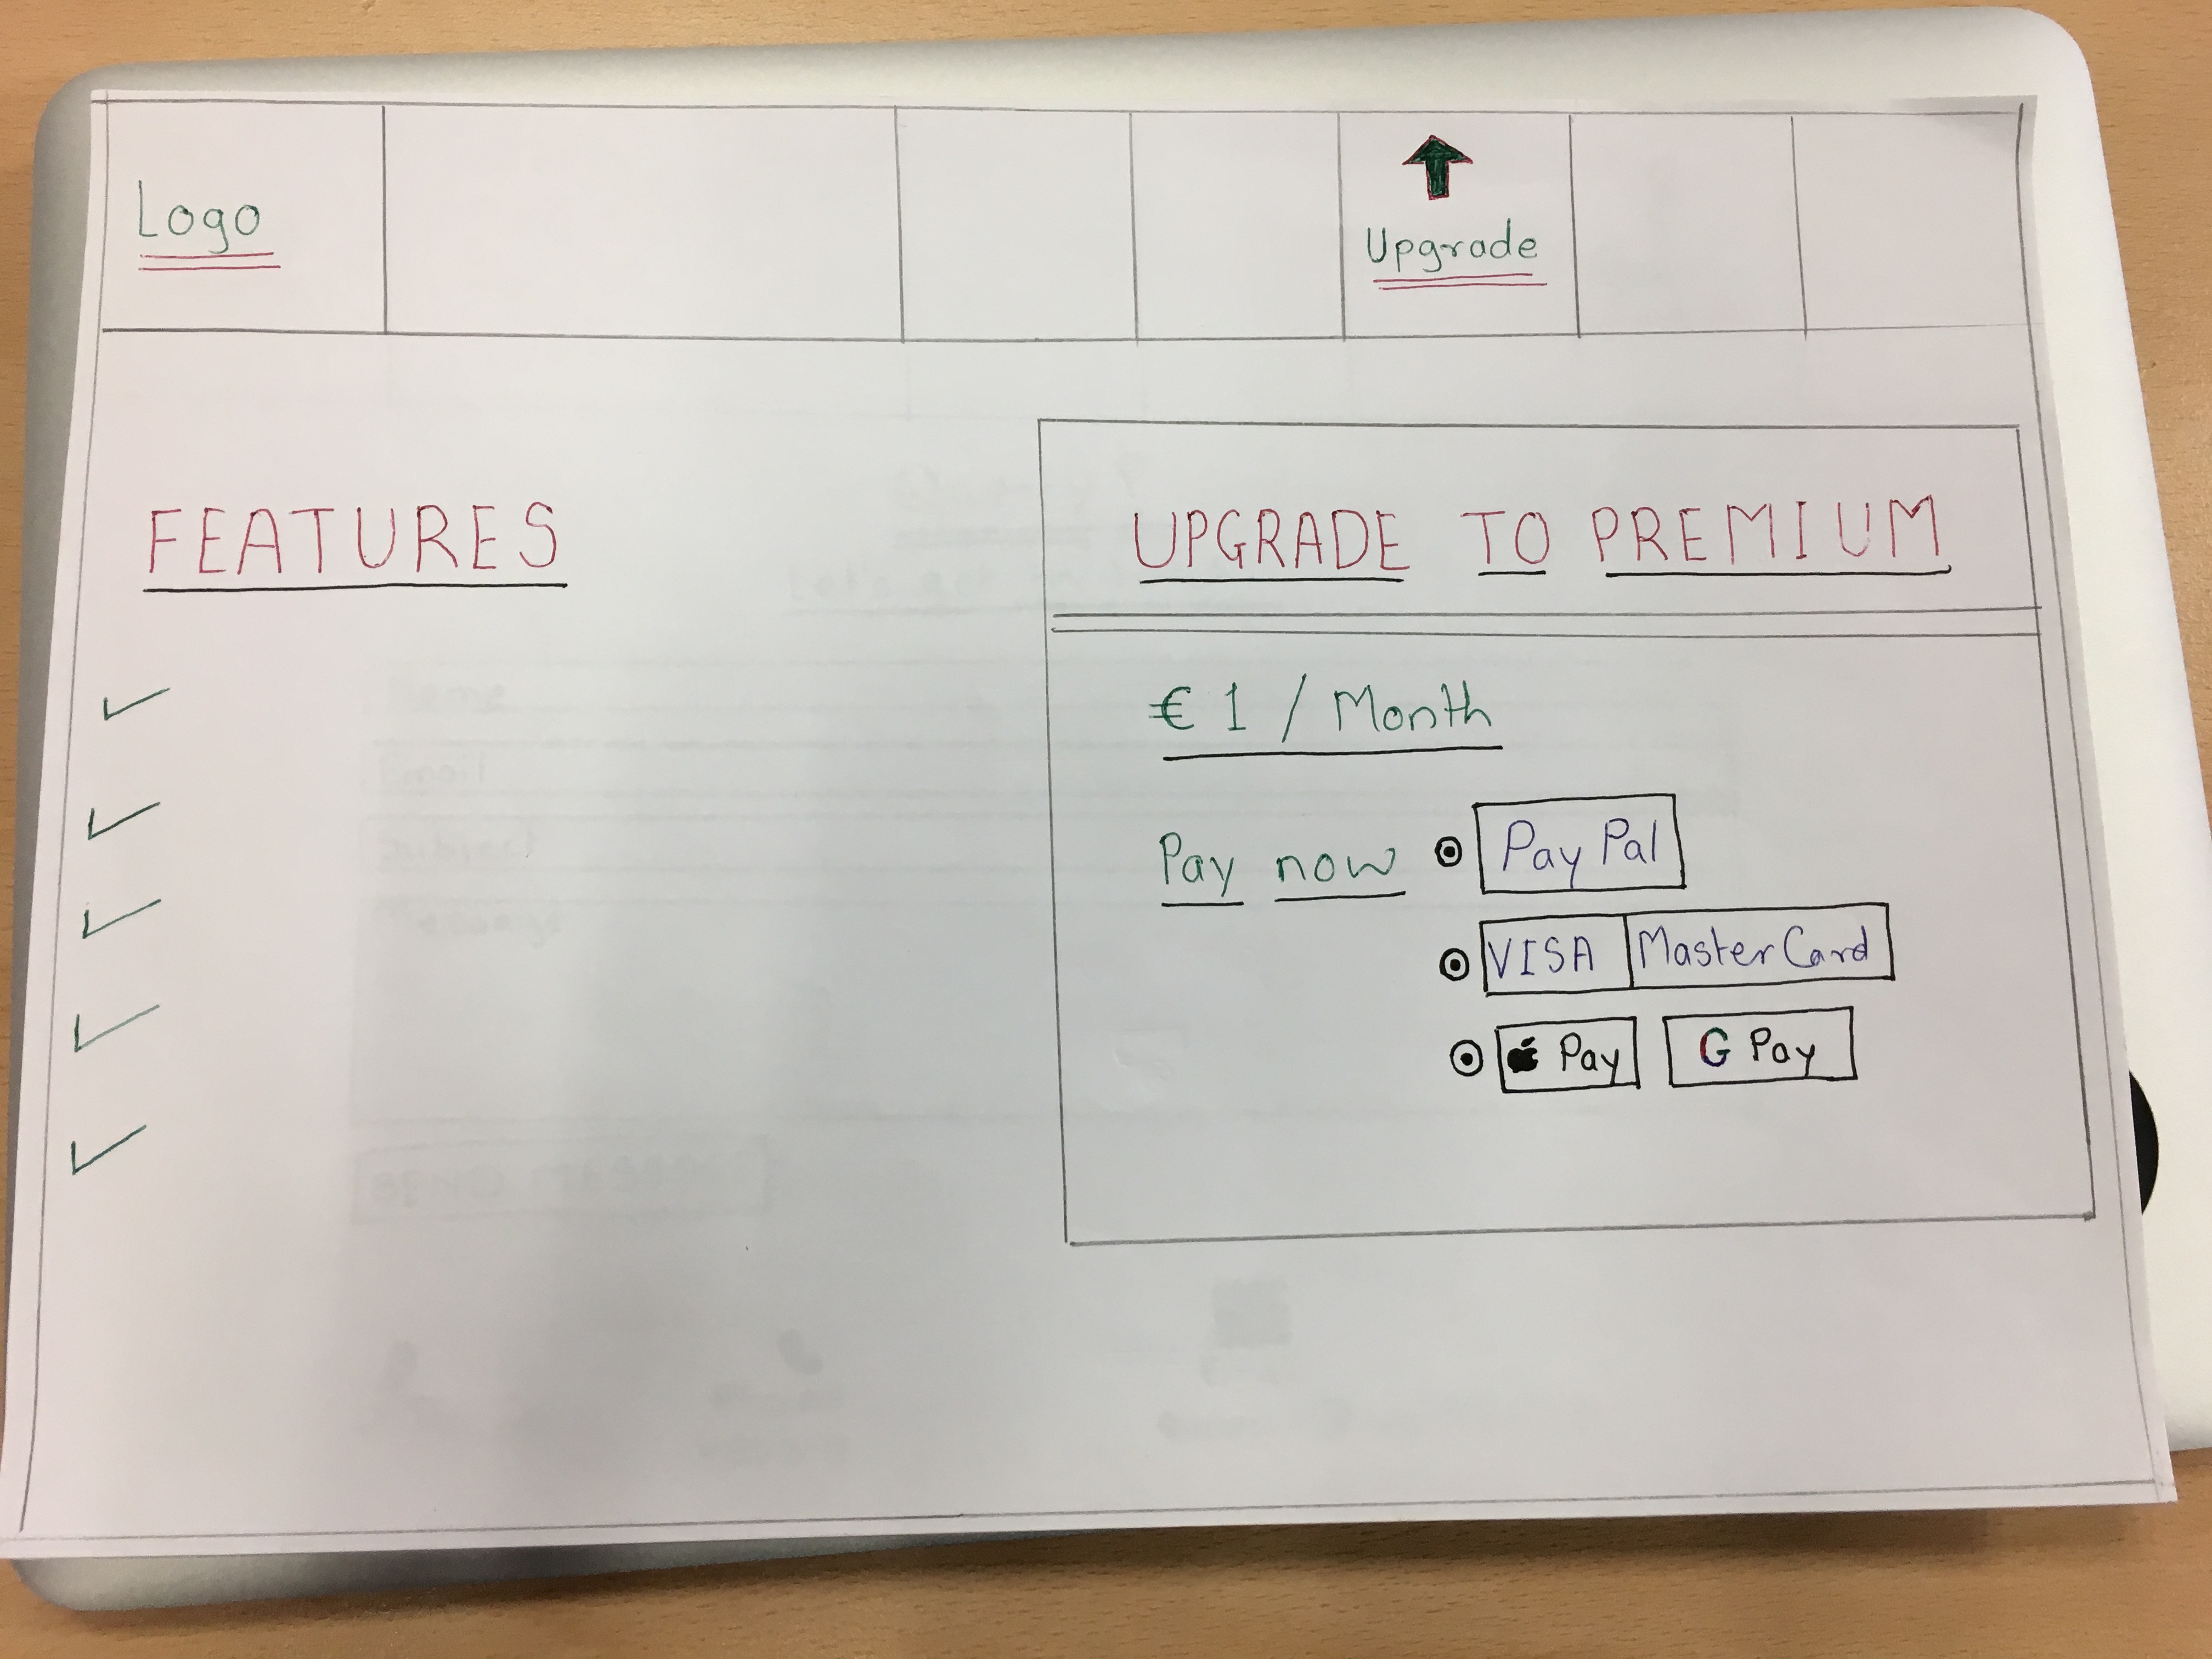 Logo
Upgrade
FEATURES
UPGRADE TO PREMIUM
€ 1 / Month
Pay now
PayPal
VISA MasterCard
Pay G Pay